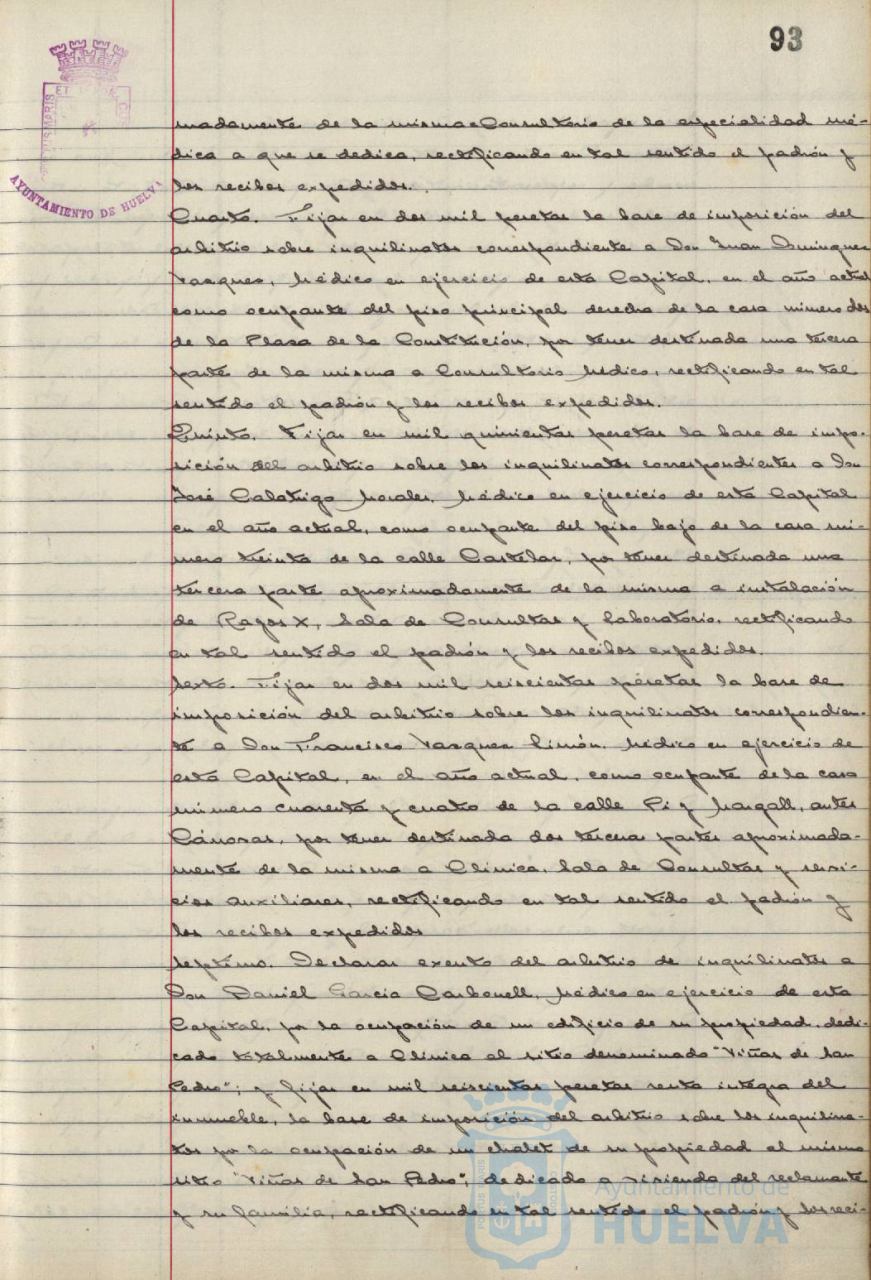 93
AYUNTAMIENTO DE HUELVA
madamente de la misma a Consultorio de la especialidad mé-
dica a que se dedica, rectificando en tal sentido el padrón y
los recibos expedidos.
Cuarto. Fijar en dos mil pesetas la base de imposición del
arbitrio sobre inquilinatos correspondiente a Don Juan Domínguez
Vazquez, Médico en ejercicio de esta Capital, en el año actual
como ocupante del piso principal derecha de la casa número dos
de la Plaza de la Constitución, por tener destinada una tercera
parte de la misma a Consultorio Médico, rectificando en tal
sentido el padrón y los recibos expedidos.
Quinto. Fijar en mil quinientas pesetas la base de impo-
sición del arbitrio sobre los inquilinatos correspondientes a Don
José Calatrigo Morales, Médico en ejercicio de esta Capital
en el año actual, como ocupante del piso bajo de la casa nú-
mero treinta de la calle Castelar, por tener destinada una
tercera parte aproximadamente de la misma a instalación
de Rayos X, Sala de Consultas y Laboratorio, rectificando
en tal sentido el padrón y los recibos expedidos.
Sexto. Fijar en dos mil seiscientas pesetas la base de
imposición del arbitrio sobre los inquilinatos correspondien-
te a Don Francisco Vazquez Limón, Médico en ejercicio de
esta Capital, en el año actual, como ocupante de la casa
número cuarenta y cuatro de la calle Pi y Margall, antes
Cánovas, por tener destinada dos tercera partes aproximada-
mente de la misma a Clínica, Sala de Consultas y servi-
cios auxiliares, rectificando en tal sentido el padrón y
los recibos expedidos
Septimo. Declarar exento del arbitrio de inquilinatos a
Don Daniel García Carbonell, Médico en ejercicio de esta
Capital, por la ocupación de un edificio de su propiedad, dedi-
cado totalmente a Clínica al sitio denominado "Viñas de San
Pedro"; y fijar en mil seiscientas pesetas renta integra del
inmueble, la base de imposición del arbitrio sobre los inquilina-
tos por la ocupación de un chalet de su propiedad al mismo
sitio "Viñas de San Pedro", dedicado a vivienda del reclamante
y su familia, rectificando en tal sentido el padrón y los reci-
Ayuntamiento de
HUELVA